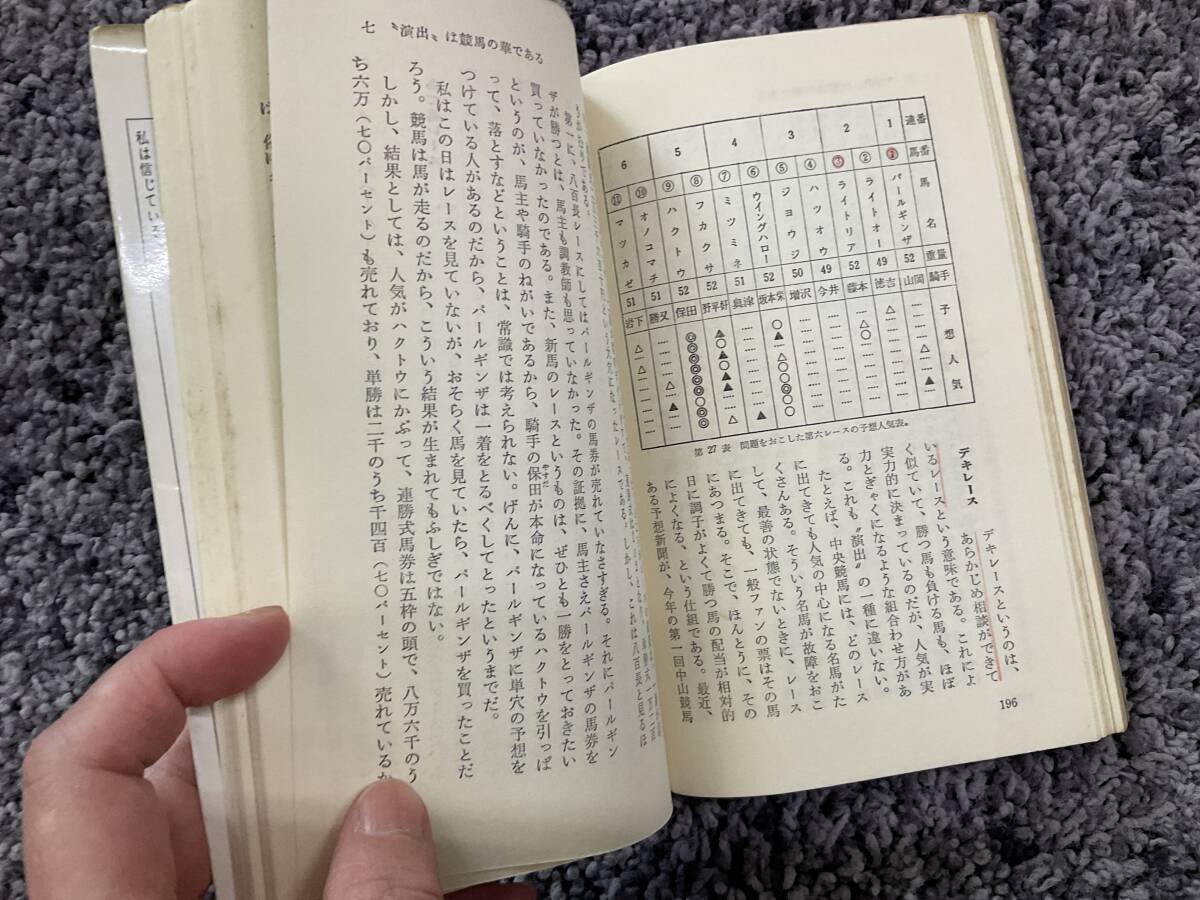 連番 馬番 馬名 重量 騎手 予想人気
1 ① パールギンザ 52 山岡
② ライトオー 49 徳吉
2 ③ ライトリア 52 藤本
④ ハツオウ 49 今井
3 ⑤ ジョウジ 50 増沢
⑥ ウイングハロー 52 坂本栄
4 ⑦ ミツミネ 51 奥津
⑧ フカクサ 52 野平好
5 ⑨ ハクトウ 52 保田
⑩ オノコマチ 51 勝又
6 ⑪ マツカゼ 51 岩下
第27表 問題をおこした第六レースの予想人気表。
デキレース
デキレースというのは、
あらかじめ相談ができて
いるレースという意味である。これによ
く似ていて、勝つ馬も負ける馬も、ほぼ
実力的に決まっているのだが、人気が実
力とぎゃくになるような組合わせ方があ
る。これも〝演出〟の一種に違いない。
たとえば、中央競馬には、どのレース
に出てきても人気の中心になる名馬がた
くさんある。そういう名馬が故障をおこ
して、最善の状態でないときに、レース
に出てきても、一般ファンの票はその馬
にあつまる。そこで、ほんとうに、その
日に調子がよくて勝つ馬の配当が相対的
によくなる、という仕組である。最近、
ある予想新聞が、今年の第一回中山競馬
196
七 〝演出〟は競馬の華である
レースである。しかし、これは八百長と見るほ
うがむりである。
第一に、八百長レースにしてはパールギンザの馬券が売れていなさすぎる。それにパールギン
ザが勝つとは、馬主も調教師も思っていなかった。その証拠に、馬主さえパールギンザの馬券を
買っていなかったのである。また、新馬のレースというものは、ぜひとも一勝をとっておきたい
というのが、馬主や騎手のねがいであるから、騎手の保田が本命になっているハクトウを引っぱ
やすだ
って、落とすなどということは、常識では考えられない。げんに、パールギンザに単穴の予想を
つけている人があるのだから、パールギンザは一着をとるべくしてとったというまでだ。
私はこの日はレースを見ていないが、おそらく馬を見ていたら、パールギンザを買ったことだ
ろう。競馬は馬が走るのだから、こういう結果が生まれてもふしぎではない。
しかし、結果としては、人気がハクトウにかぶって、連勝式馬券は五枠の頭で、八万六千のう
ち六万（七〇パーセント）も売れており、単勝は二千のうち千四百（七〇パーセント）売れているか
私は信じてい